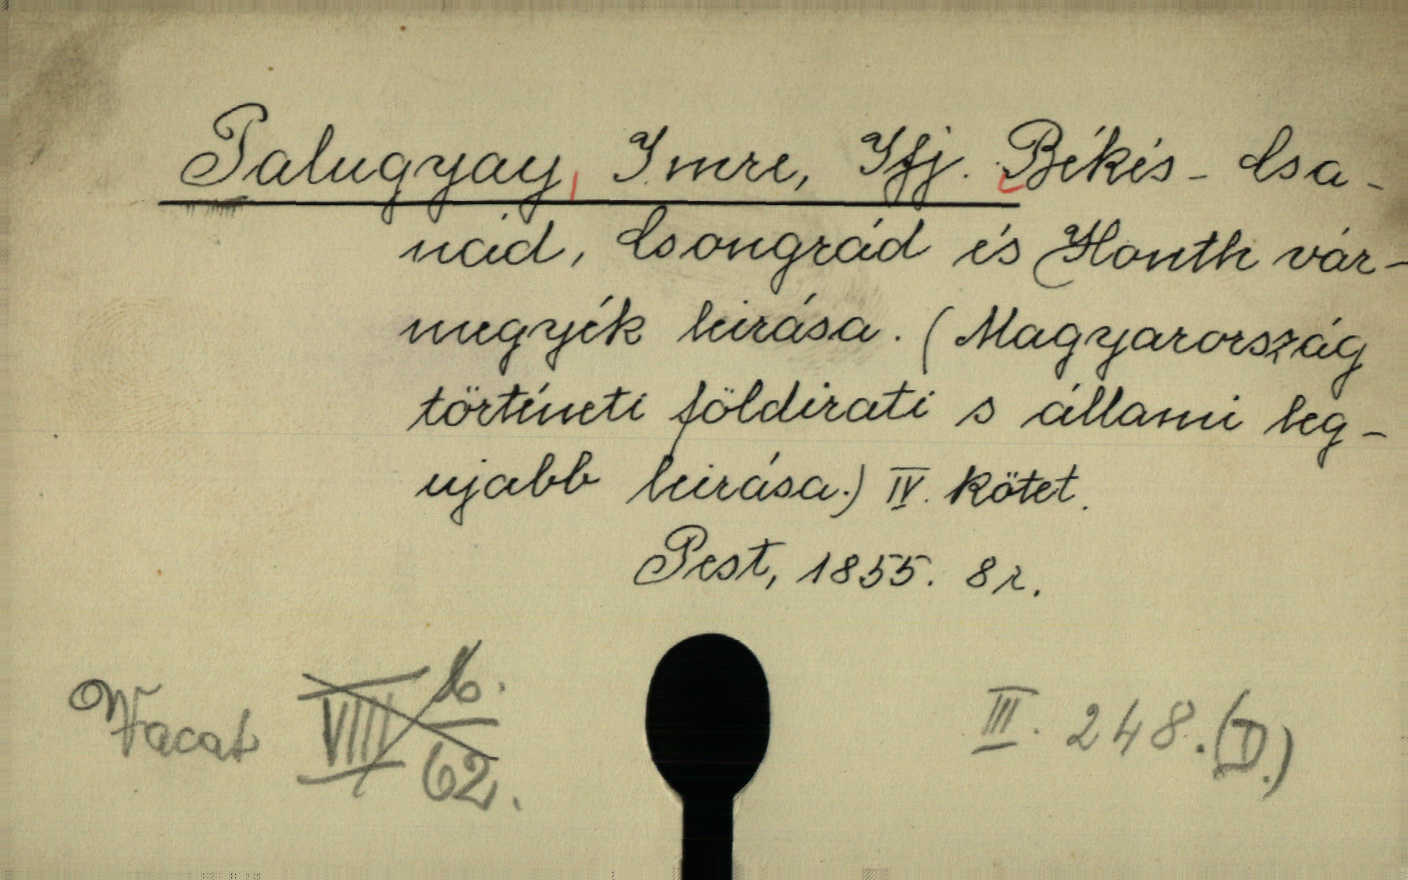 Palugyay, Imre, Ifj. Békés-Csa-
nád, Csongrád és Honth vár-
megyék leirása. (Magyarország
történeti földirati s állami leg-
ujabb leirása.) IV. kötet.
Pest, 1855. 8r.
Vacat VIII 6. 62.
III. 248. (D.)